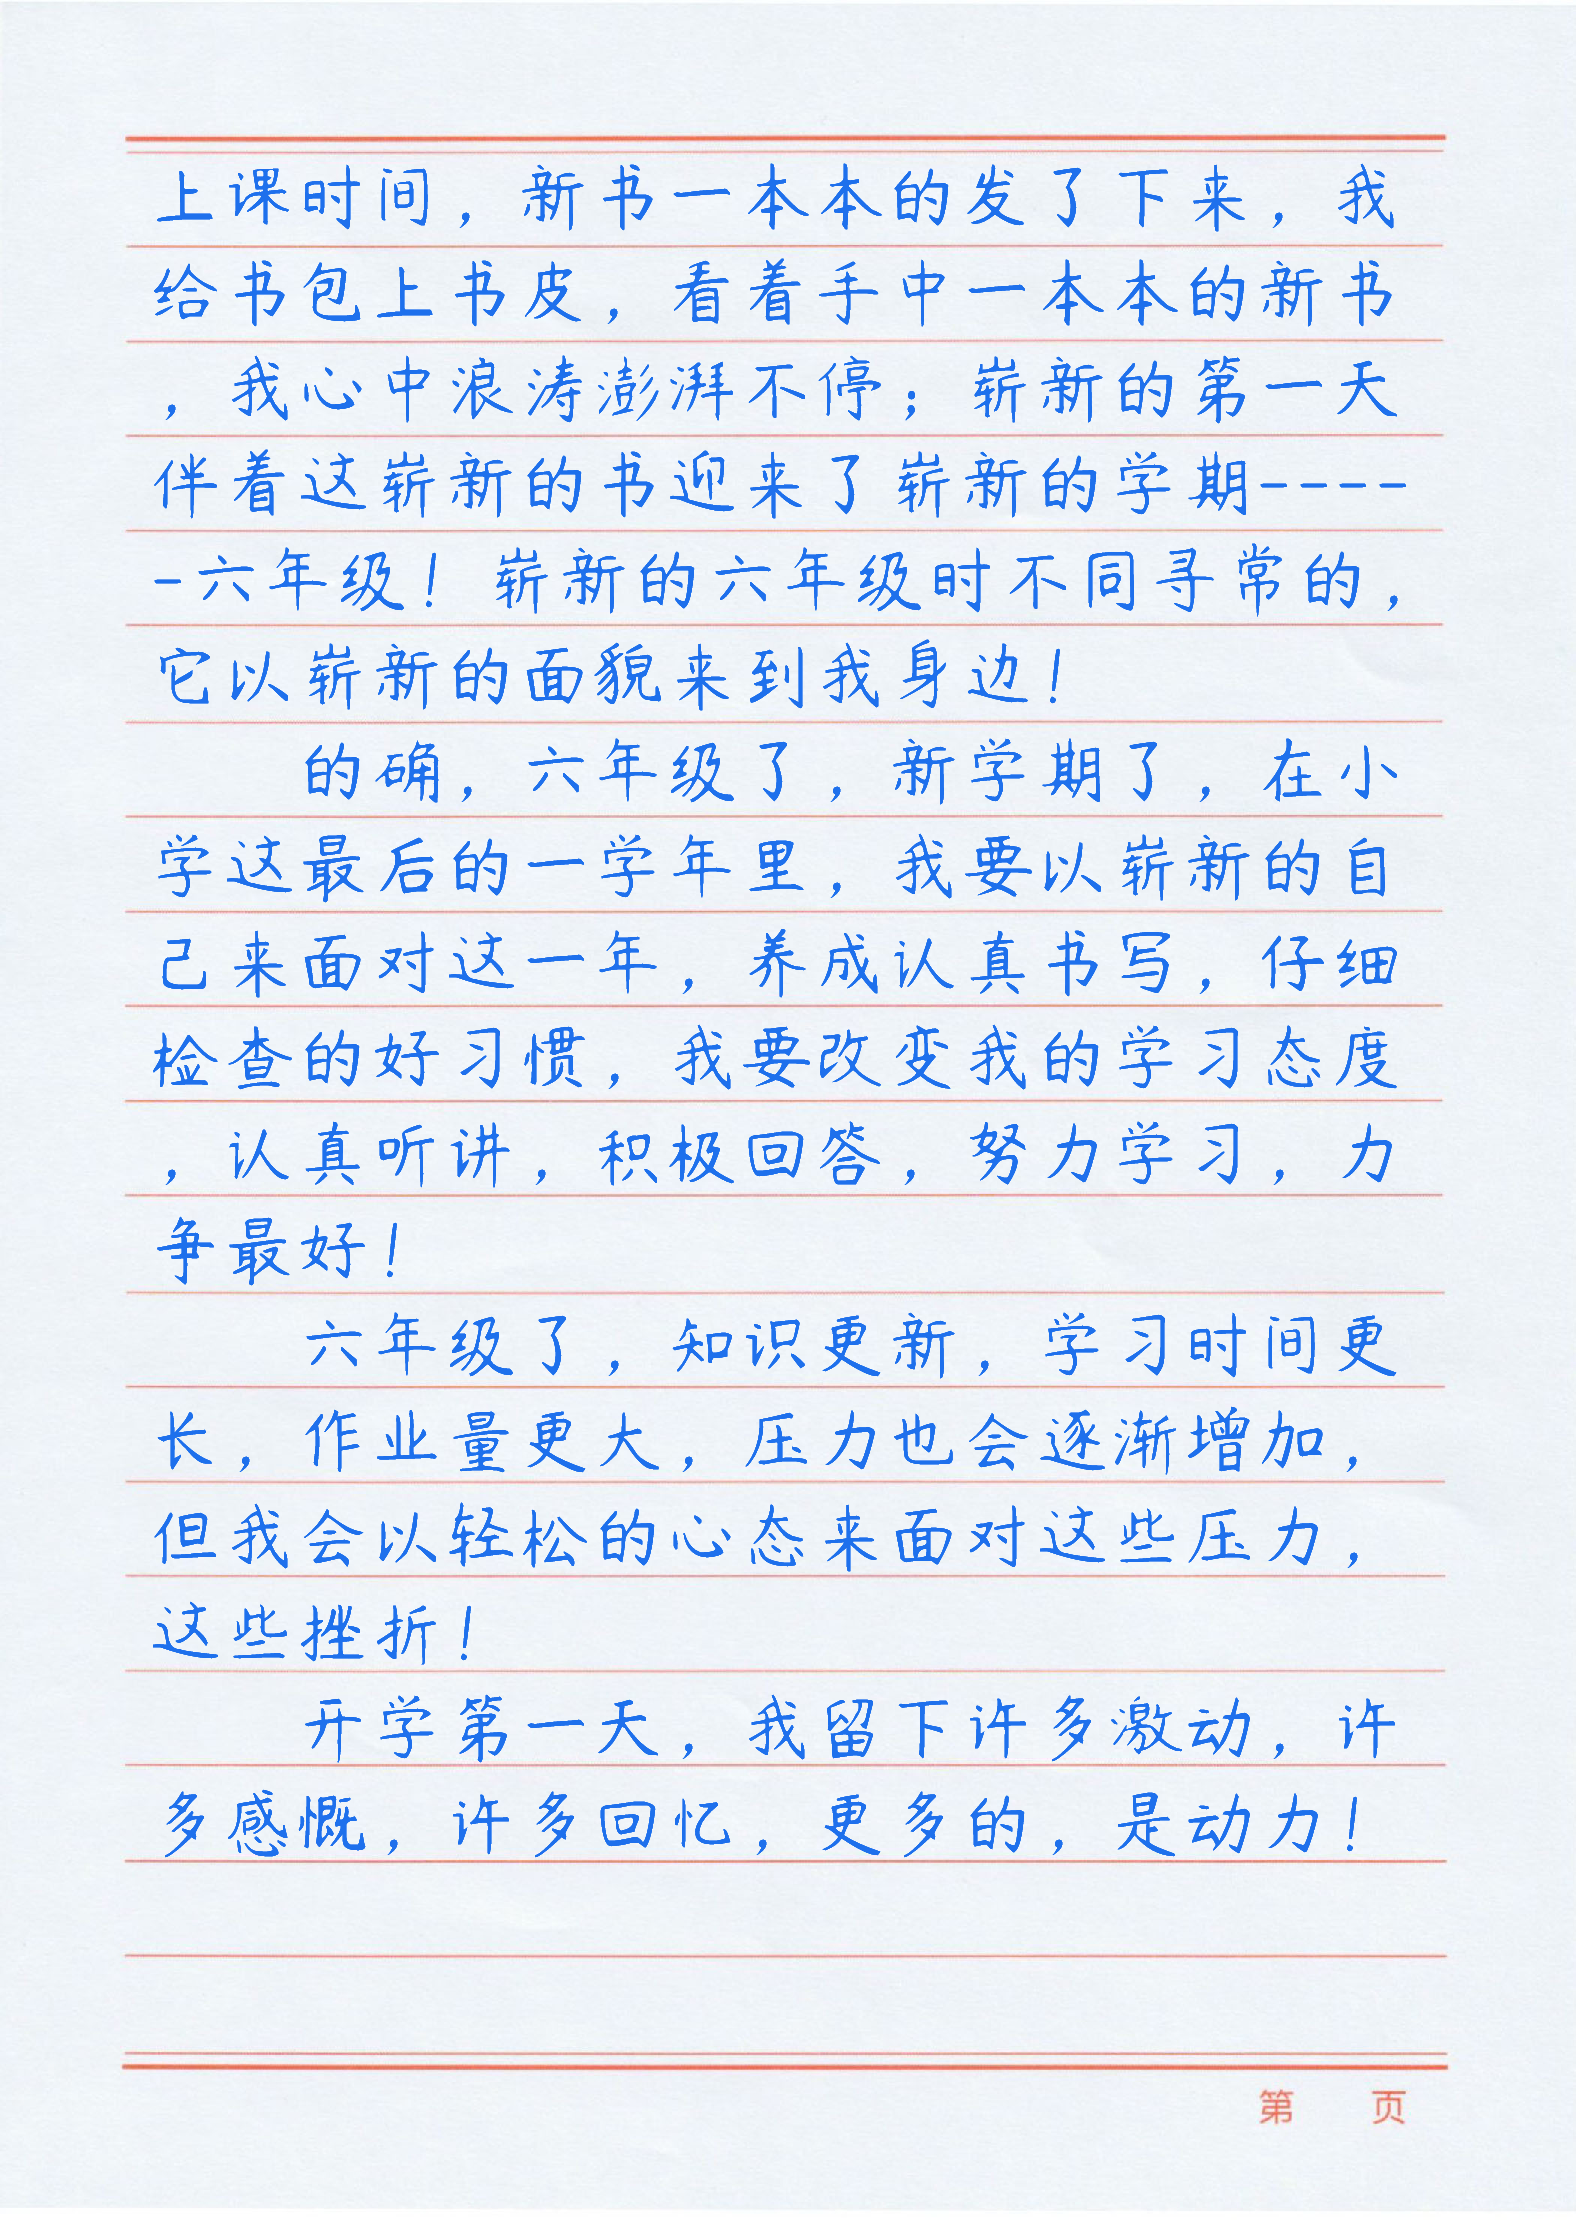 上课时间，新书一本本的发了下来，我
给书包上书皮，看着手中一本本的新书
，我心中浪涛澎湃不停；崭新的第一天
伴着这崭新的书迎来了崭新的学期----
-六年级！崭新的六年级时不同寻常的，
它以崭新的面貌来到我身边！
的确，六年级了，新学期了，在小
学这最后的一学年里，我要以崭新的自
己来面对这一年，养成认真书写，仔细
检查的好习惯，我要改变我的学习态度
，认真听讲，积极回答，努力学习，力
争最好！
六年级了，知识更新，学习时间更
长，作业量更大，压力也会逐渐增加，
但我会以轻松的心态来面对这些压力，
这些挫折！
开学第一天，我留下许多激动，许
多感慨，许多回忆，更多的，是动力！
第 页